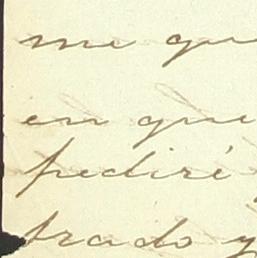 me qu
en que
pediré
trado y